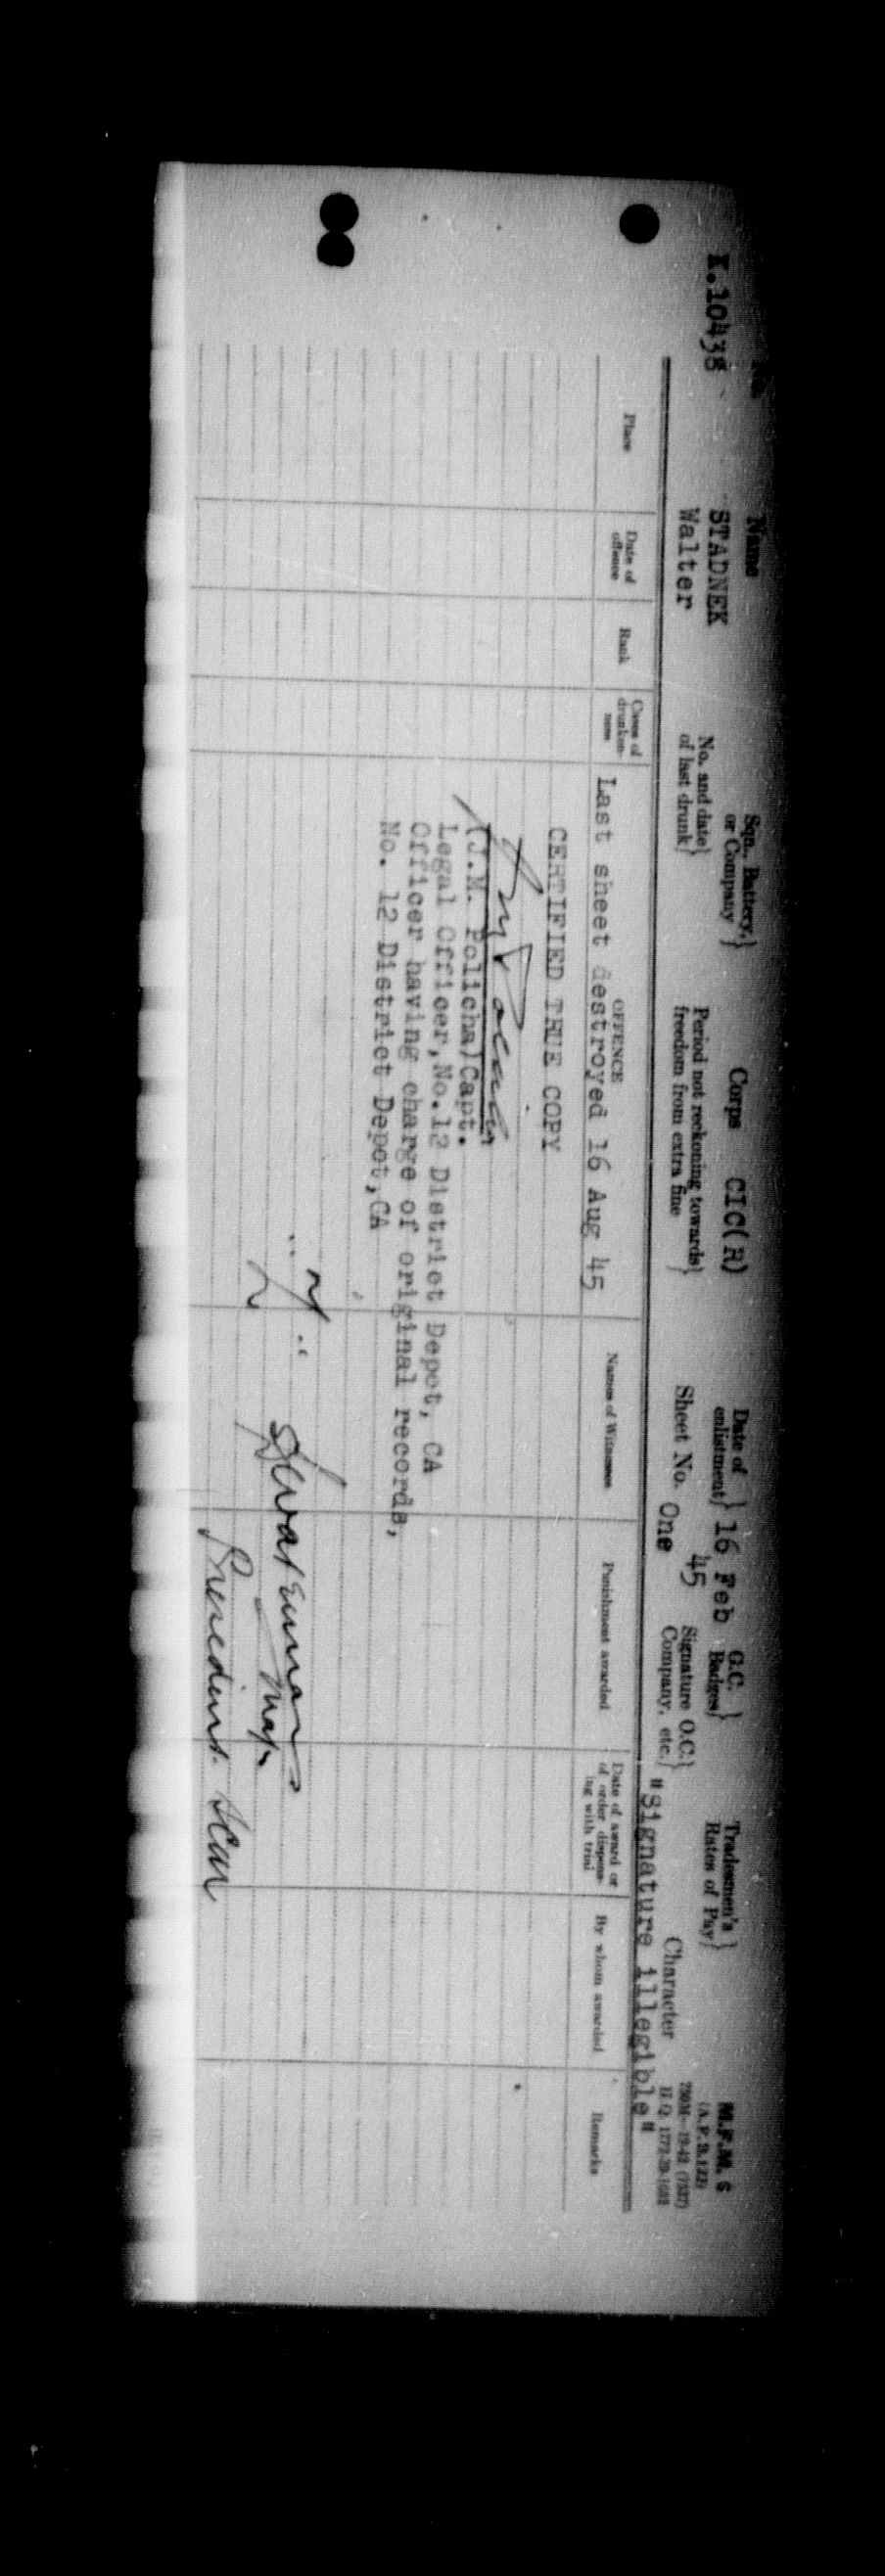 No Name Sqn., Battery, or Company} Corps CIC(R) Date of enlistment} 16 Feb 45 G.C. Badges} Tradesmen's Rates of Pay} M.F.M. 6
K.10438 STADNEK
Walter
No. and date of last drunk} Period not reckoning towards freedom from extra fine} Sheet No. One Signature O.C. Company, etc.} "Signature illegible" Character
Place Date of offence Rank Cases of drunkenness OFFENCE Names of Witnesses Punishment awarded Date of award or of order dispensing with trial By whom awarded Remarks
Last sheet destroyed 16 Aug 45
CERTIFIED TRUE COPY
(J.M. Policha)Capt.
Legal Officer,No.12 District Depot, CA
Officer having charge of original records,
No. 12 District Depot,CA
Major
President